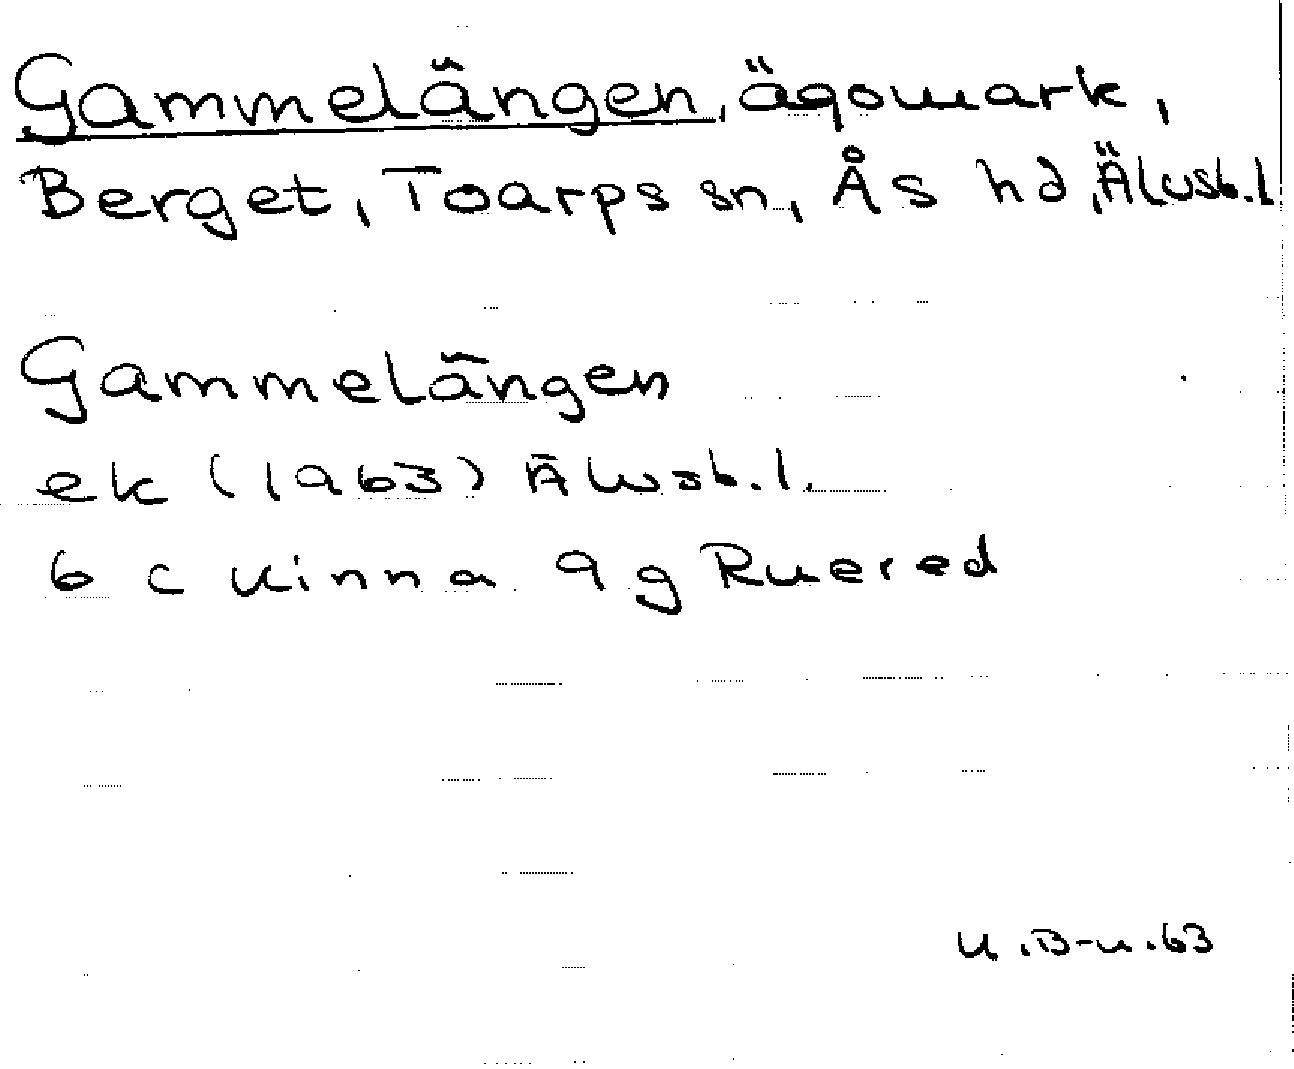 Gammelängen, ägomark,
Berget, Toarps sn, Ås hd, Älvsb.l
Gammelängen
ek (1963) Älvsb.l.
6 c Kinna 9 g Rvered